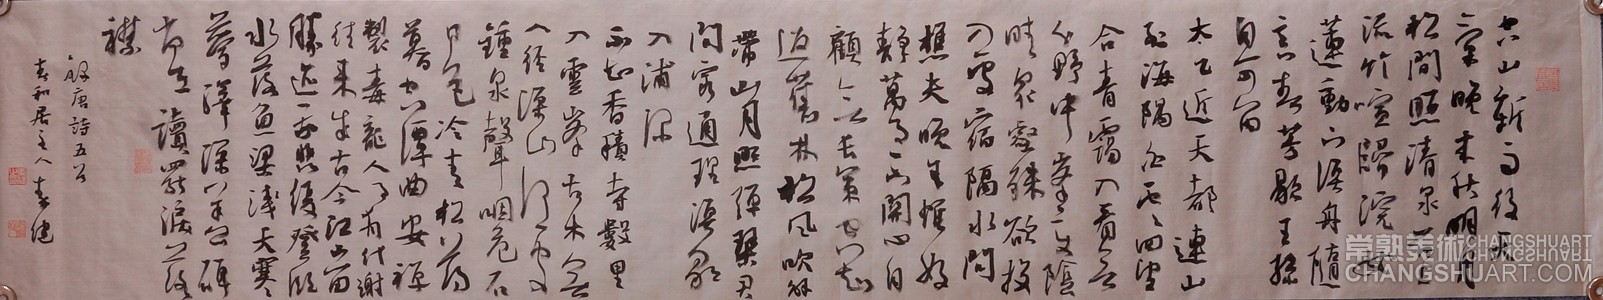 空山新雨後天
氣晚來秋明月
松間照清泉石上
流竹喧歸浣女
蓮動下漁舟隨
意春芳歇王孫
自可留
太乙近天都連山
到海隅白雲回望
合青靄入看無
分野中峯變陰
晴衆壑殊欲投
人處宿隔水問
樵夫晚年惟好
靜萬事不關心自
顧無長策空知
返舊林松風吹解
帶山月照彈琴君
問窮通理漁歌
入浦深
不知香積寺數里
入雲峯古木無
人徑深山何處
鐘泉聲咽危石
日色冷青松薄
暮空潭曲安禪
製毒龍人事有代謝
往來成古今江山留
勝迹我輩復登臨
水落魚梁淺天寒
夢澤深羊公碑
尚在讀罷淚落
襟
録唐詩五首
春和居主人
常熟美術 CHANGSHUART
CHANGSHUART.COM